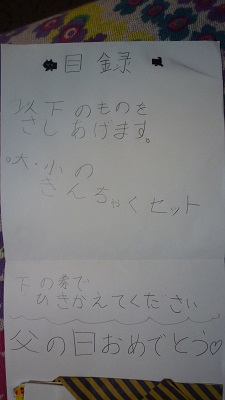 目録
以下のものを
さしあげます。
・大・小の
きんちゃくセット
下の券で
ひきかえてください
父の日おめでとう♡